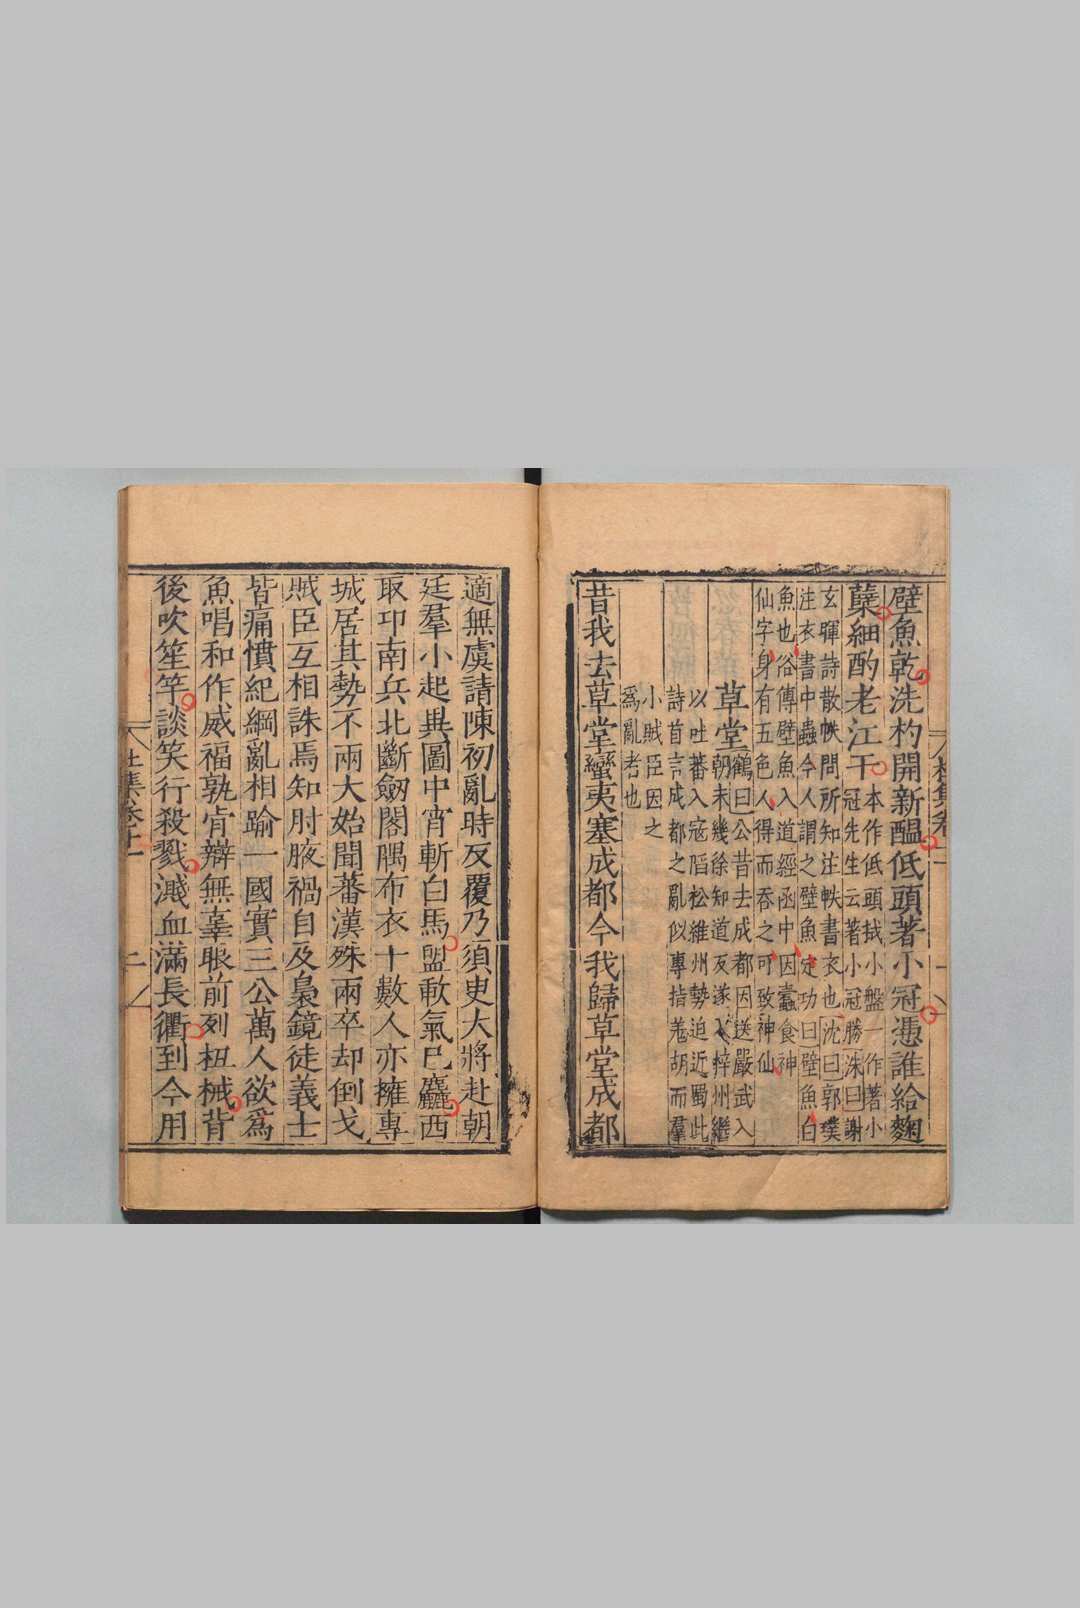 壁魚乾洗杓開新醖低頭著小冠憑誰給麴
糵細酌老江干
本作低頭拭小盤一作著小
冠先生云著小冠勝洙曰謝
玄暉詩散帙問所知注帙書衣也沈曰郭璞
注衣書中蟲今人謂之壁魚定功曰壁魚白
魚也俗傳壁魚入道經函中因蠹食神
仙字身有五色人得而吞之可致神仙
草堂
鶴曰公昔去成都因送嚴武入
朝未幾徐知道反遂入梓州繼
以吐蕃入寇陷松維州勢迫近蜀此
詩首言成都之亂似專指羗胡而羣
小賊臣因之
爲亂者也
昔我去草堂蠻夷塞成都今我歸草堂成都
適無虞請陳初亂時反覆乃須臾大將赴朝
廷羣小起異圖中宵斬白馬盟歃氣已麤西
取卭南兵北斷劒閣隅布衣十數人亦擁專
城居其勢不兩大始聞蕃漢殊兩卒却倒戈
賊臣互相誅焉知肘腋禍自及梟鏡徒義士
皆痛憤紀綱亂相踰一國實三公萬人欲爲
魚唱和作威福孰肯辯無辜眼前列杻械背
後吹笙竽談笑行殺戮濺血滿長衢到今用
杜集卷十一
二